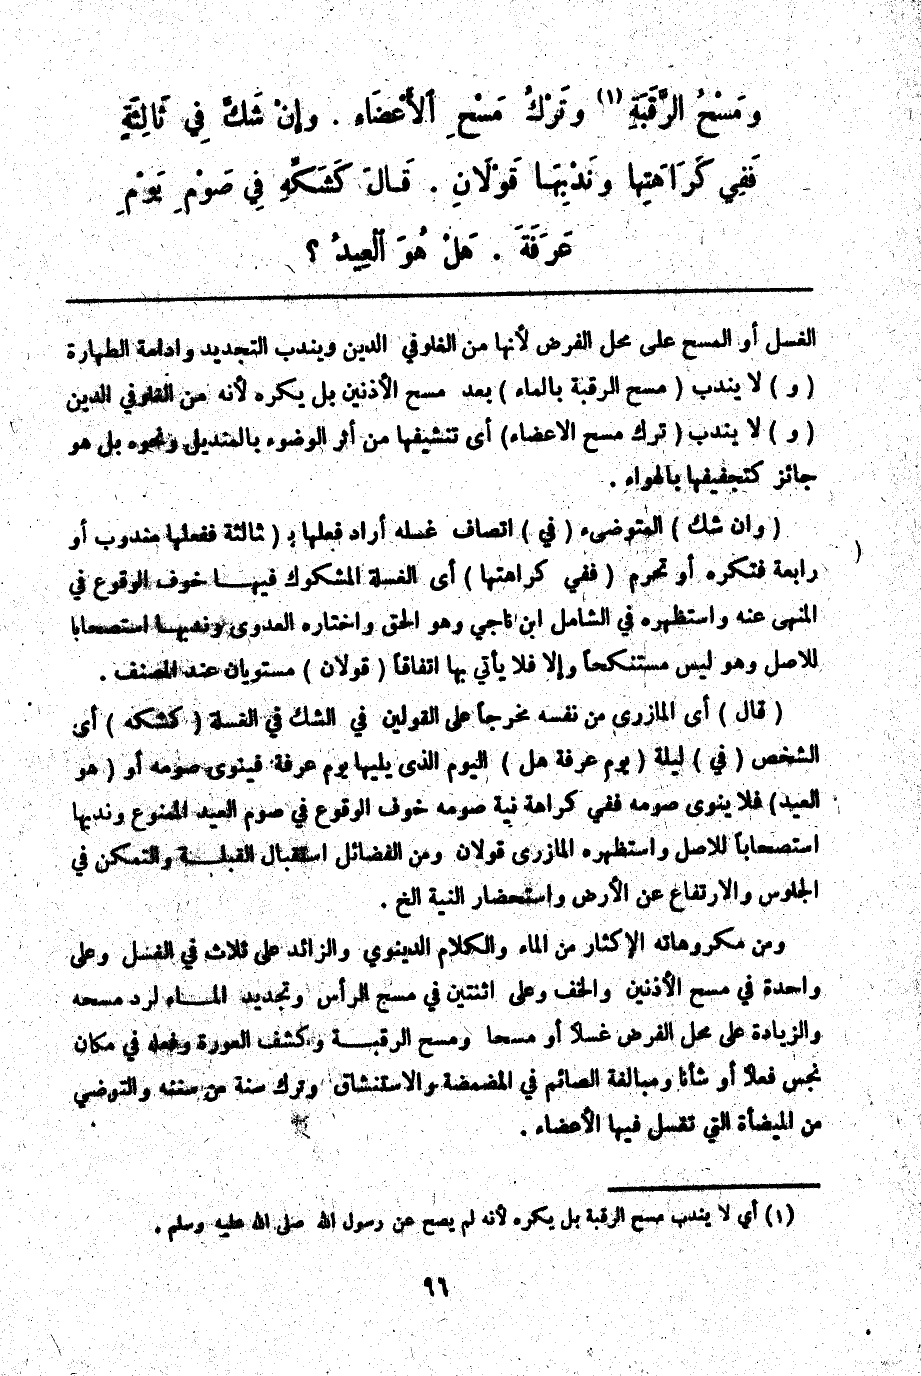 ومَسْحُ الرَّقَبَةِ (١) وتَرْكُ مَسْحِ ٱلأَعْضَاءِ . وإنْ شَكَّ فِي ثَالِثَةٍ
فَفِي كَرَاهَتِها ونَدْبِهَا قَوْلَانِ . قَالَ كَشَكِّهِ فِي صَوْمِ يَوْمِ
عَرَفَةَ . هَلْ هُوَ ٱلْعِيدُ ؟
الغسل أو المسح على محل الفرض لأنها من الغلوفي الدين ويندب التجديد وادامة الطهارة
( و ) لا يندب ( مسح الرقبة بالماء ) بعد مسح الأذنين بل يكره لأنه من الغلوفي الدين
( و ) لا يندب ( ترك مسح الاعضاء) أى تنشيفها من أثر الوضوء بالمنديل ونحوه بل هو
جائز كتجفيفها بالهواء .
( وان شك ) المتوضىء ( في ) اتصاف غسله أراد فعلها بـ ( ثالثة ففعلها مندوب أو
رابعة فتكره أو تحرم ( ففي كراهتها ) أى الغسلة المشكوك فيهـــا خوف الوقوع في
المنهى عنه واستظهره في الشامل ابن ناجي وهو الحق واختاره العدوى وندبهـا استصحابا
للاصل وهو ليس مستنكحاً وإلا فلا يأتي بها اتفاقاً ( قولان ) مستويان عند المصنف .
( قال ) أى المازرى من نفسه مخرجاً على القولين في الشك في الغسلة ( كشكه ) أى
الشخص ( في ) ليلة ( يوم عرفة هل ) اليوم الذى يليها يوم عرفة فينوى صومه أو ( هو
العيد) فلا ينوى صومه ففي كراهة نية صومه خوف الوقوع في صوم العيد الممنوع وندبها
استصحاباً للاصل واستظهره المازرى قولان ومن الفضائل استقبال القبلـــة والتمكن في
الجلوس والارتفاع عن الأرض واستحضار النية الخ .
ومن مكروهاته الإكثار من الماء والكلام الدينوي والزائد على ثلاث في الغسل وعلى
واحدة في مسح الأذنين والخف وعلى اثنتين في مسح الرأس وتجديد المـــاء لرد مسحه
والزيادة على محل الفرض غسلاً أو مسحا ومسح الرقبـــة وكشف العورة وفعله في مكان
نجس فعلاً أو شأنا ومبالغة الصائم في المضمضة والاستنشاق وترك سنة من سننه والتوضي
من الميضأة التي تغسل فيها الأعضاء .
(١) أي لا يندب مسح الرقبة بل يكره لأنه لم يصح عن رسول الله صلى الله عليه وسلم .
٩٦